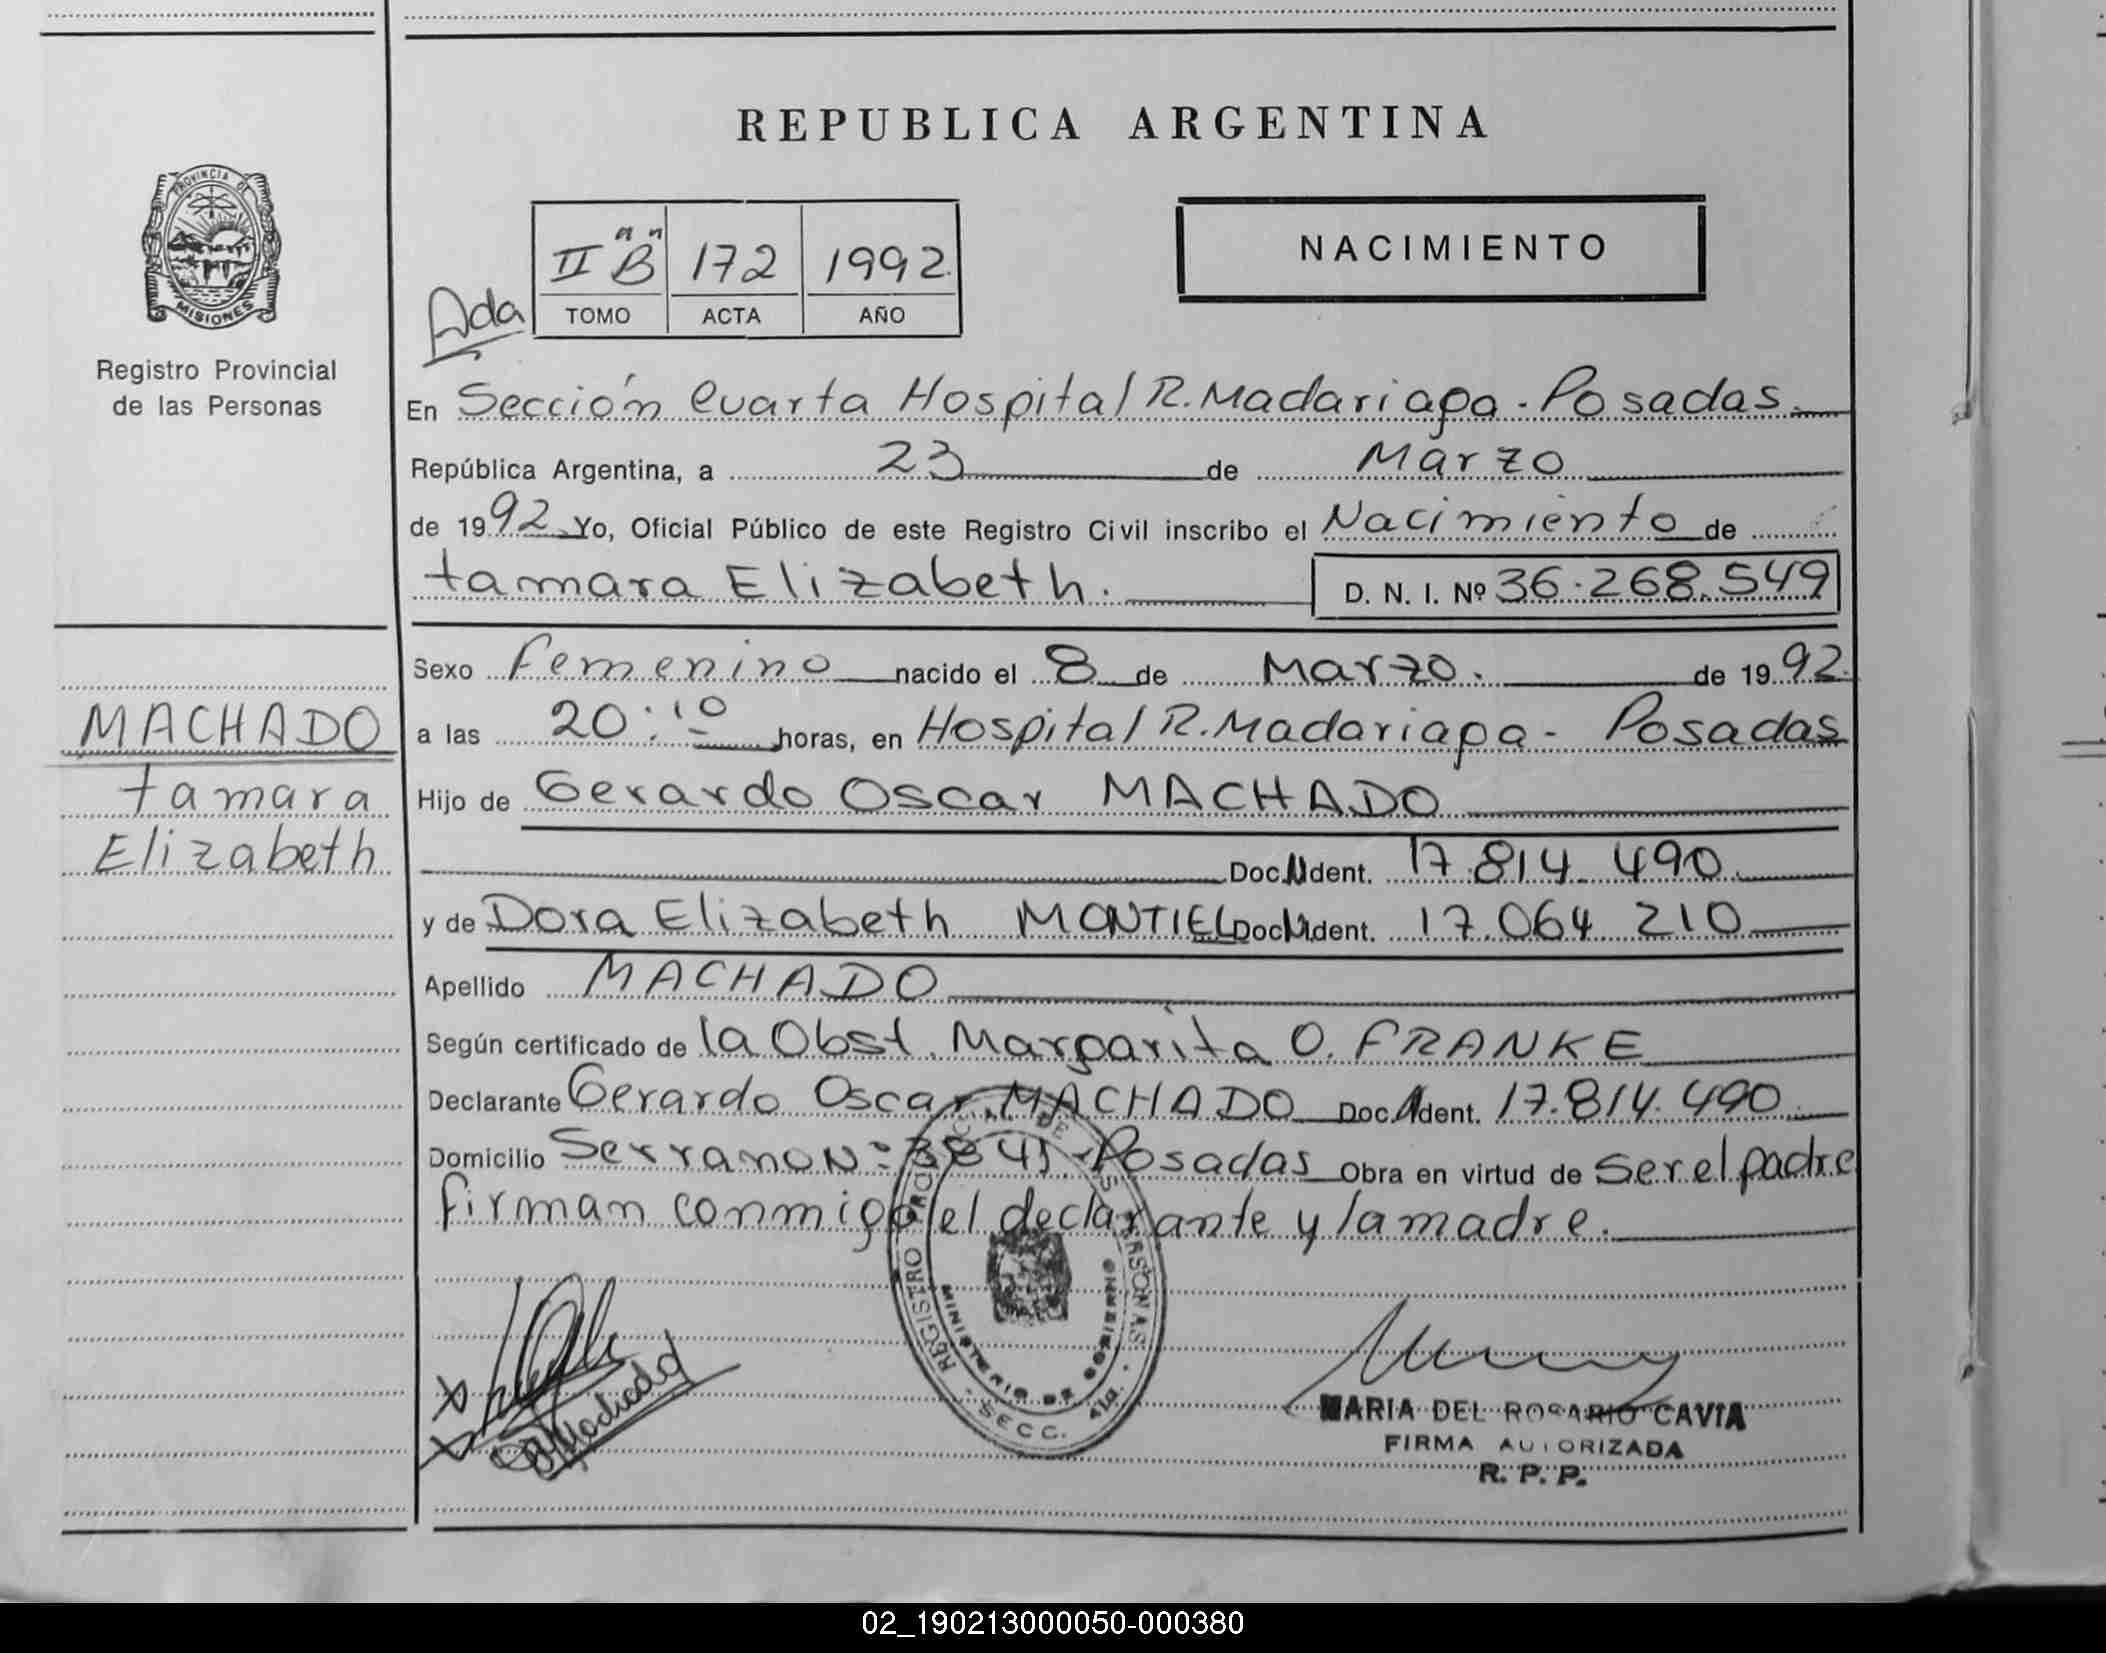 REPUBLICA ARGENTINA
PROVINCIA DE
MISIONES
Registro Provincial
de las Personas
II "B" 172 1992
TOMO ACTA AÑO
NACIMIENTO
Ada
En Sección Cuarta Hospital R. Madariaga - Posadas.
República Argentina, a 23 de Marzo
de 1992 Yo, Oficial Público de este Registro Civil inscribo el Nacimiento de
tamara Elizabeth. D. N. I. Nº 36.268.549
Sexo Femenino nacido el 8 de Marzo. de 1992.
MACHADO
tamara
Elizabeth
a las 20:10 horas, en Hospital R. Madariaga - Posadas
Hijo de Gerardo Oscar MACHADO
Doc. Ident. 17.814.490
y de Dora Elizabeth MONTIEL Doc. Ident. 17.064.210
Apellido MACHADO
Según certificado de la Obst. Margarita O. FRANKE
Declarante Gerardo Oscar MACHADO Doc. Ident. 17.814.490
Domicilio Serrano Nº 3841 - Posadas Obra en virtud de Ser el padre
firman conmigo el declarante y la madre.
REGISTRO DE LAS PERSONAS
MINISTERIO DE GOBIERNO
SECC. 4ta.
Machado
MARIA DEL ROSARIO CAVIA
FIRMA AUTORIZADA
R. P. P.
02_190213000050-000380